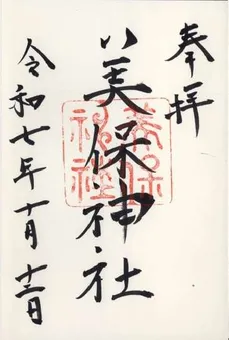 奉拝
美保神社
美保
神社
令和七年十月